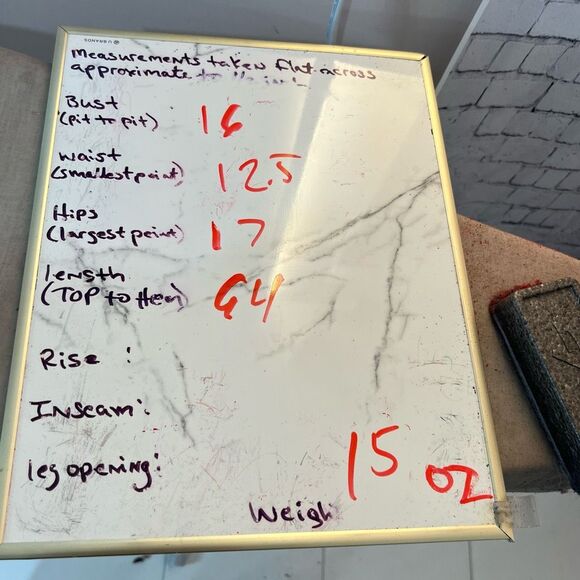 U BRANDS
measurements taken flat across
approximate
Bust
(pit to pit) 16
waist
(smallest point) 12.5
Hips
(largest point) 17
length
(TOP to Hem) 64
Rise :
Inseam:
leg opening:
15 oz
Weigh